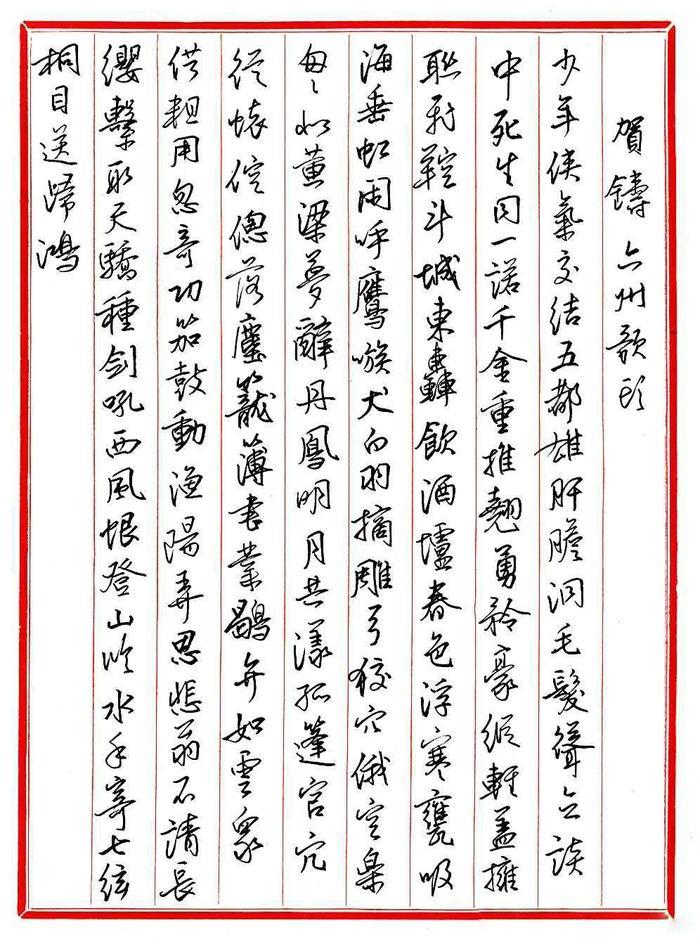 賀鑄六州歌頭
少年俠氣交結五都雄肝膽洞毛髮聳立談
中死生同一諾千金重推翹勇矜豪縱輕蓋擁
聯飛鞚斗城東轟飲酒壚春色浮寒甕吸
海垂虹閑呼鷹嗾犬白羽摘雕弓狡穴俄空樂
匆匆似黃粱夢辭丹鳳明月共漾孤篷官冗
從懷倥傯落塵籠簿書叢鶡弁如雲衆
供粗用忽奇功笳鼓動漁陽弄思悲翁不請長
纓繫取天驕種劍吼西風恨登山臨水手寄七絃
桐目送歸鴻